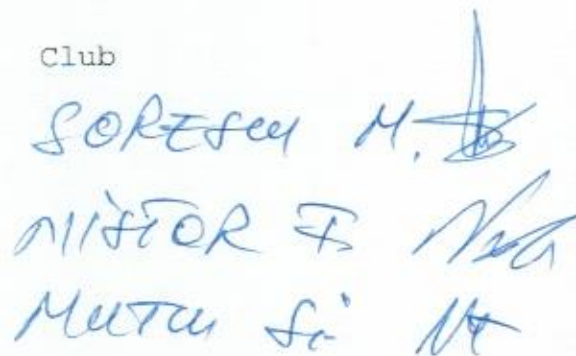 Club
SORESCU M.
NISTOR F.
MUTCU S.